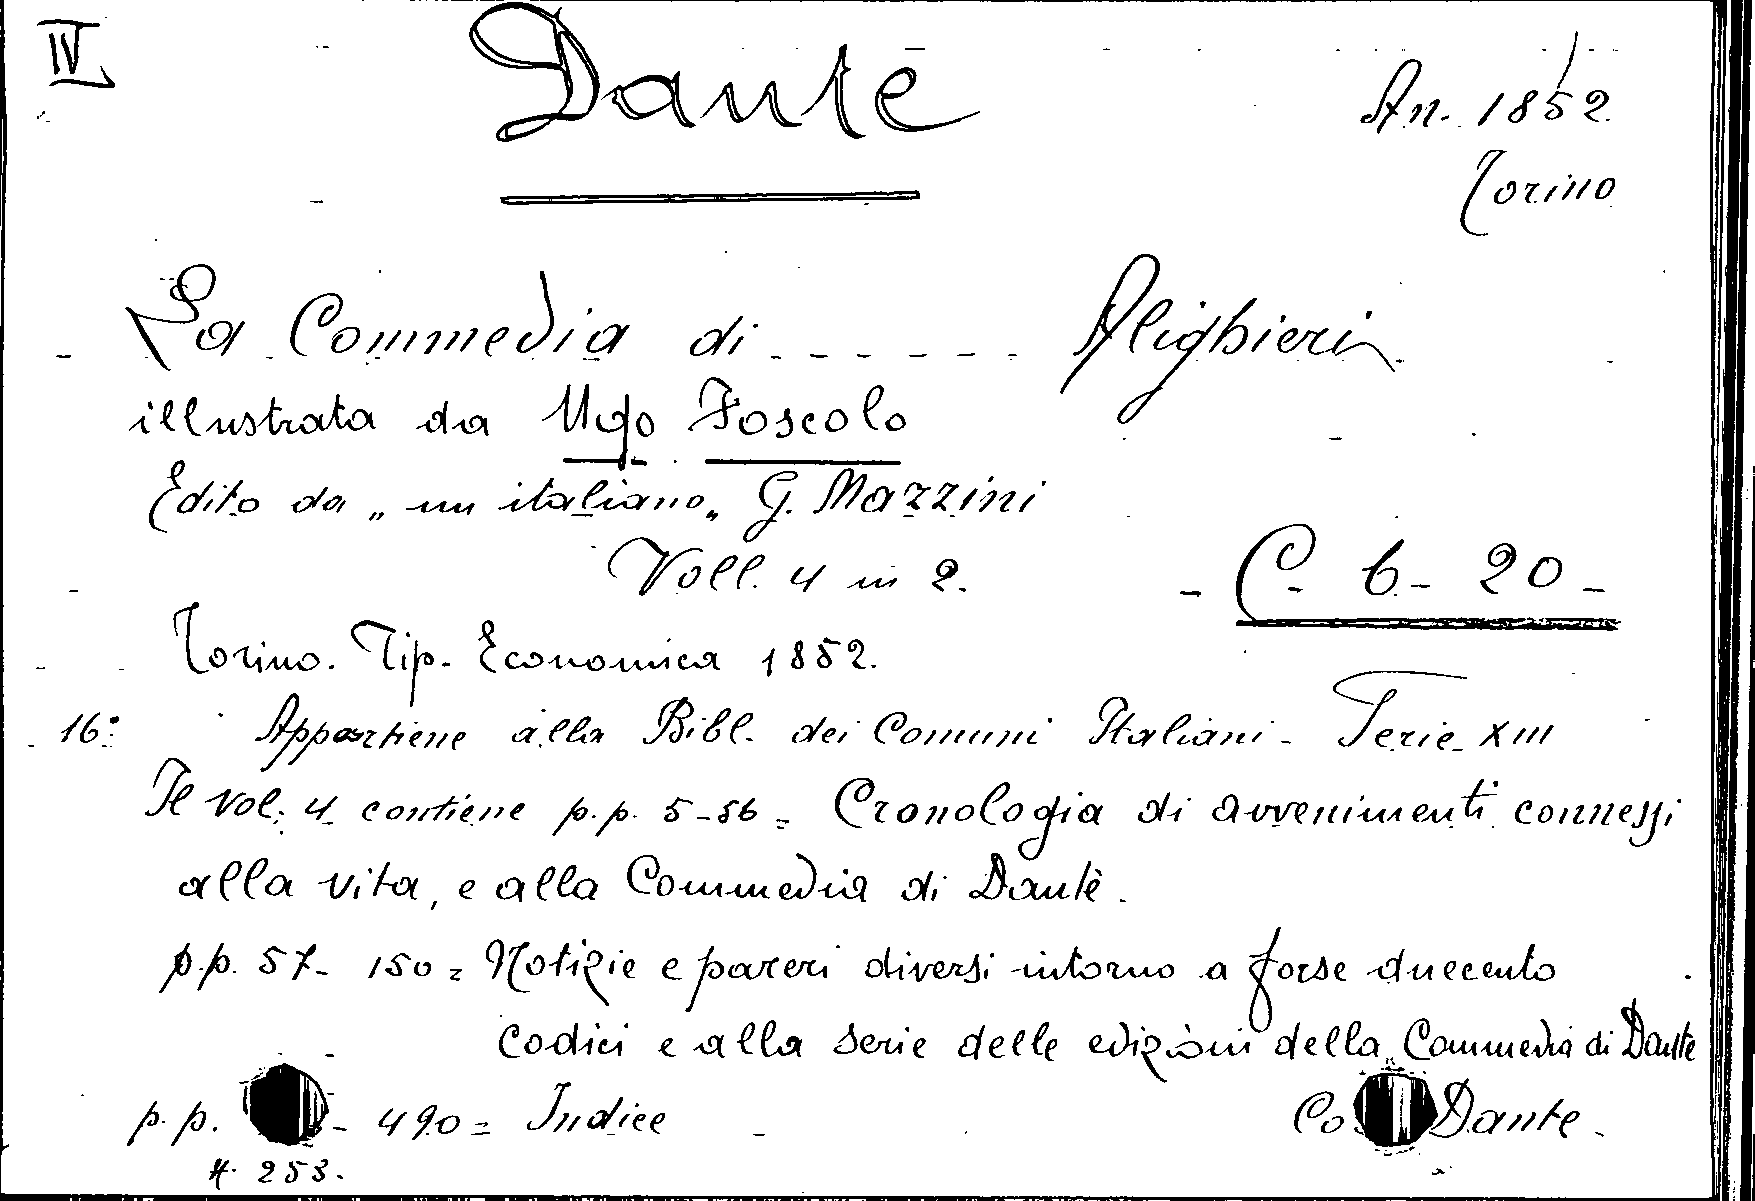 IV
Dante
An. 1852
Torino
La Commedia di - - - - - - Alighieri
illustrata da Ugo Foscolo
Edito da „ un italiano „ G. Mazzini
Voll. 4 in 2.
- C. 6 - 20 -
Torino. Tip. Economica 1852.
16° Appartiene alla Bibl. dei Comuni Italiani - Serie XIII
Il Vol. 4 contiene p.p. 5-56 = Cronologia di avvenimenti connessi
alla vita, e alla Commedia di Dante.
p.p. 57 - 150 = Notizie e pareri diversi intorno a forse duecento
codici e alla serie delle edizioni della Commedia di Dante
p.p. - 490 = Indice
Co Dante.
H. 253.